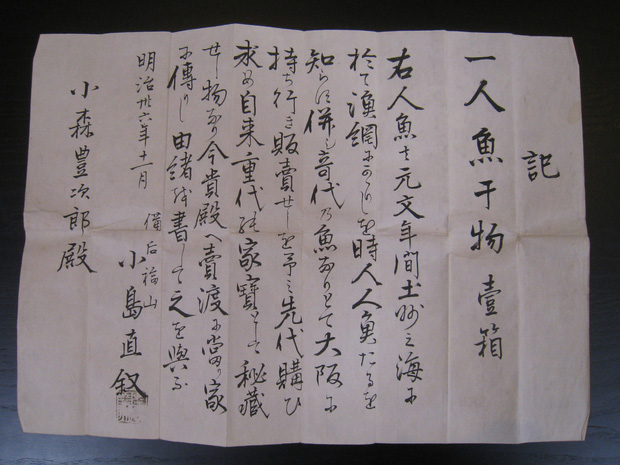 記
一人魚干物 壹箱
右人魚ハ元文年間土州之海ニ
於て漁網にかゝりしを時人人魚たるを
知らす併し奇代乃魚なりとて大阪に
持ち行き販賣せしを予之先代購ひ
求め自来重代の家寳として秘藏
せし物なり今貴殿へ賣渡に當り家
に傳りし由緒を書して之を與ふ
明治卅六年十一月
備后福山
小島直叙
小森豊次郎殿